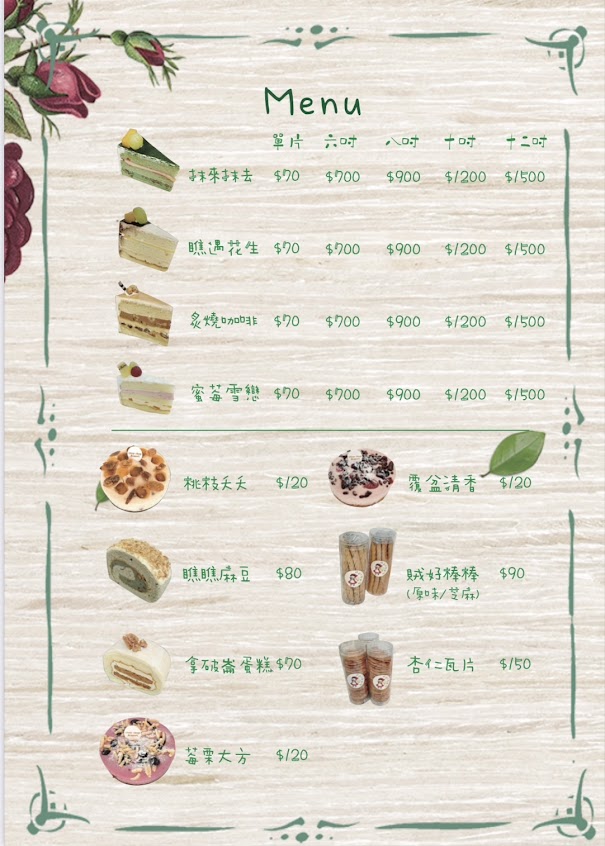 Menu
單片 六吋 八吋 十吋 十二吋
抹來抹去 $70 $700 $900 $1200 $1500
瞧遇花生 $70 $700 $900 $1200 $1500
炙燒咖啡 $70 $700 $900 $1200 $1500
蜜莓雪戀 $70 $700 $900 $1200 $1500
桃枝夭夭 $120 覆盆清香 $120
瞧瞧麻豆 $80 賊好棒棒 $90
(原味/芝麻)
拿破崙蛋糕 $70 杏仁瓦片 $150
莓栗大方 $120